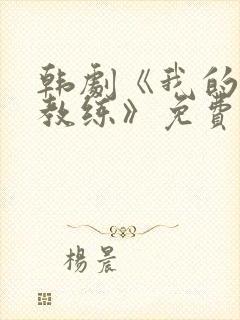 韩劇《我的
教练》免費
楊晨